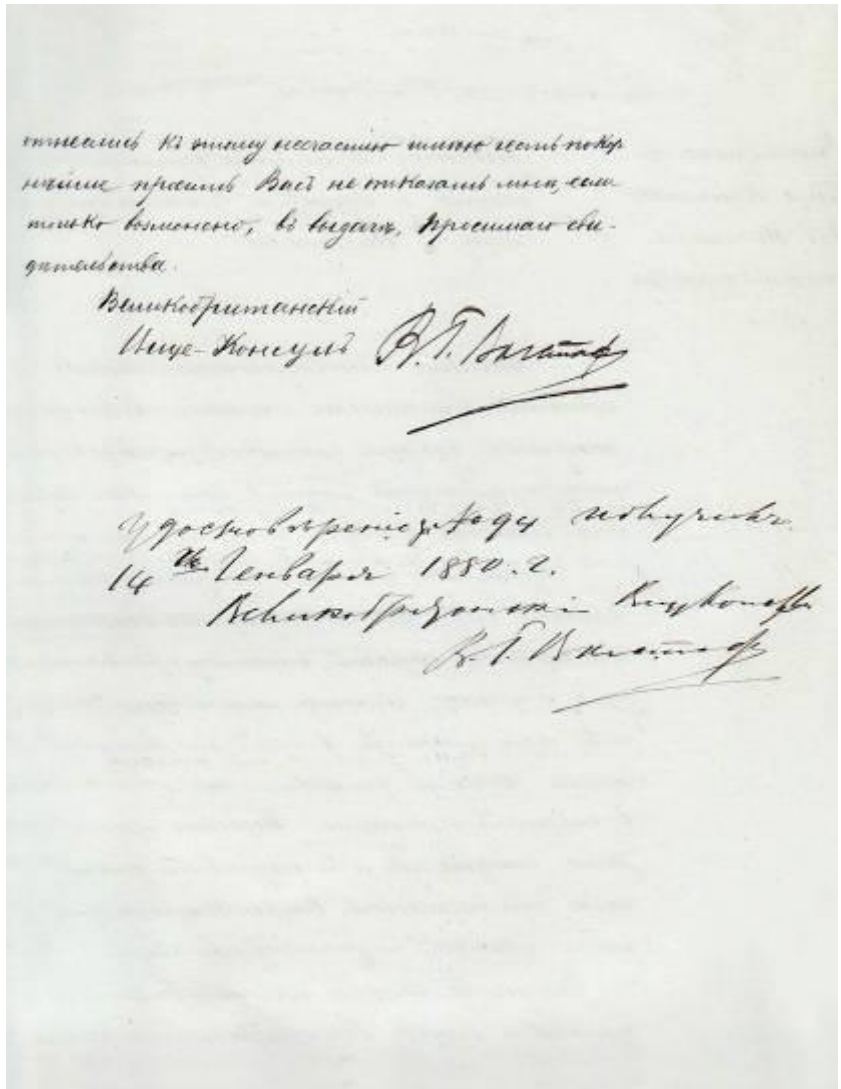 отнеслись къ этому несчастію имѣю честь покор
нѣйше просить Васъ не отказать мнѣ, если
только возможно, въ выдачѣ, просимаго сви-
дѣтельства.
Великобританскій
Вице-Консулъ В. Г. Вагстаф
Удостовѣреніе получилъ
14го Генваря 1880. г.
Великобританскій Вицеконсулъ
В. Г. Вагстаф